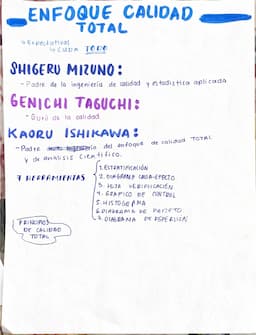 ENFOQUE CALIDAD
TOTAL
↳ Expectativas
↳ Cubra TODO
SHIGERU MIZUNO:
- Padre de la ingeniería de calidad y estadística aplicada
GENICHI TAGUCHI:
- Gurú de la calidad
KAORU ISHIKAWA:
- Padre del enfoque de calidad TOTAL
y de análisis científico.
7 HERRAMIENTAS
1. ESTRATIFICACIÓN
2. DIAGRAMA CAUSA-EFECTO
3. HOJA VERIFICACIÓN
4. GRÁFICO DE CONTROL
5. HISTOGRAMA
6. DIAGRAMA DE PARETO
7. DIAGRAMA DE DISPERSIÓN
PRINCIPIOS
DE CALIDAD
TOTAL